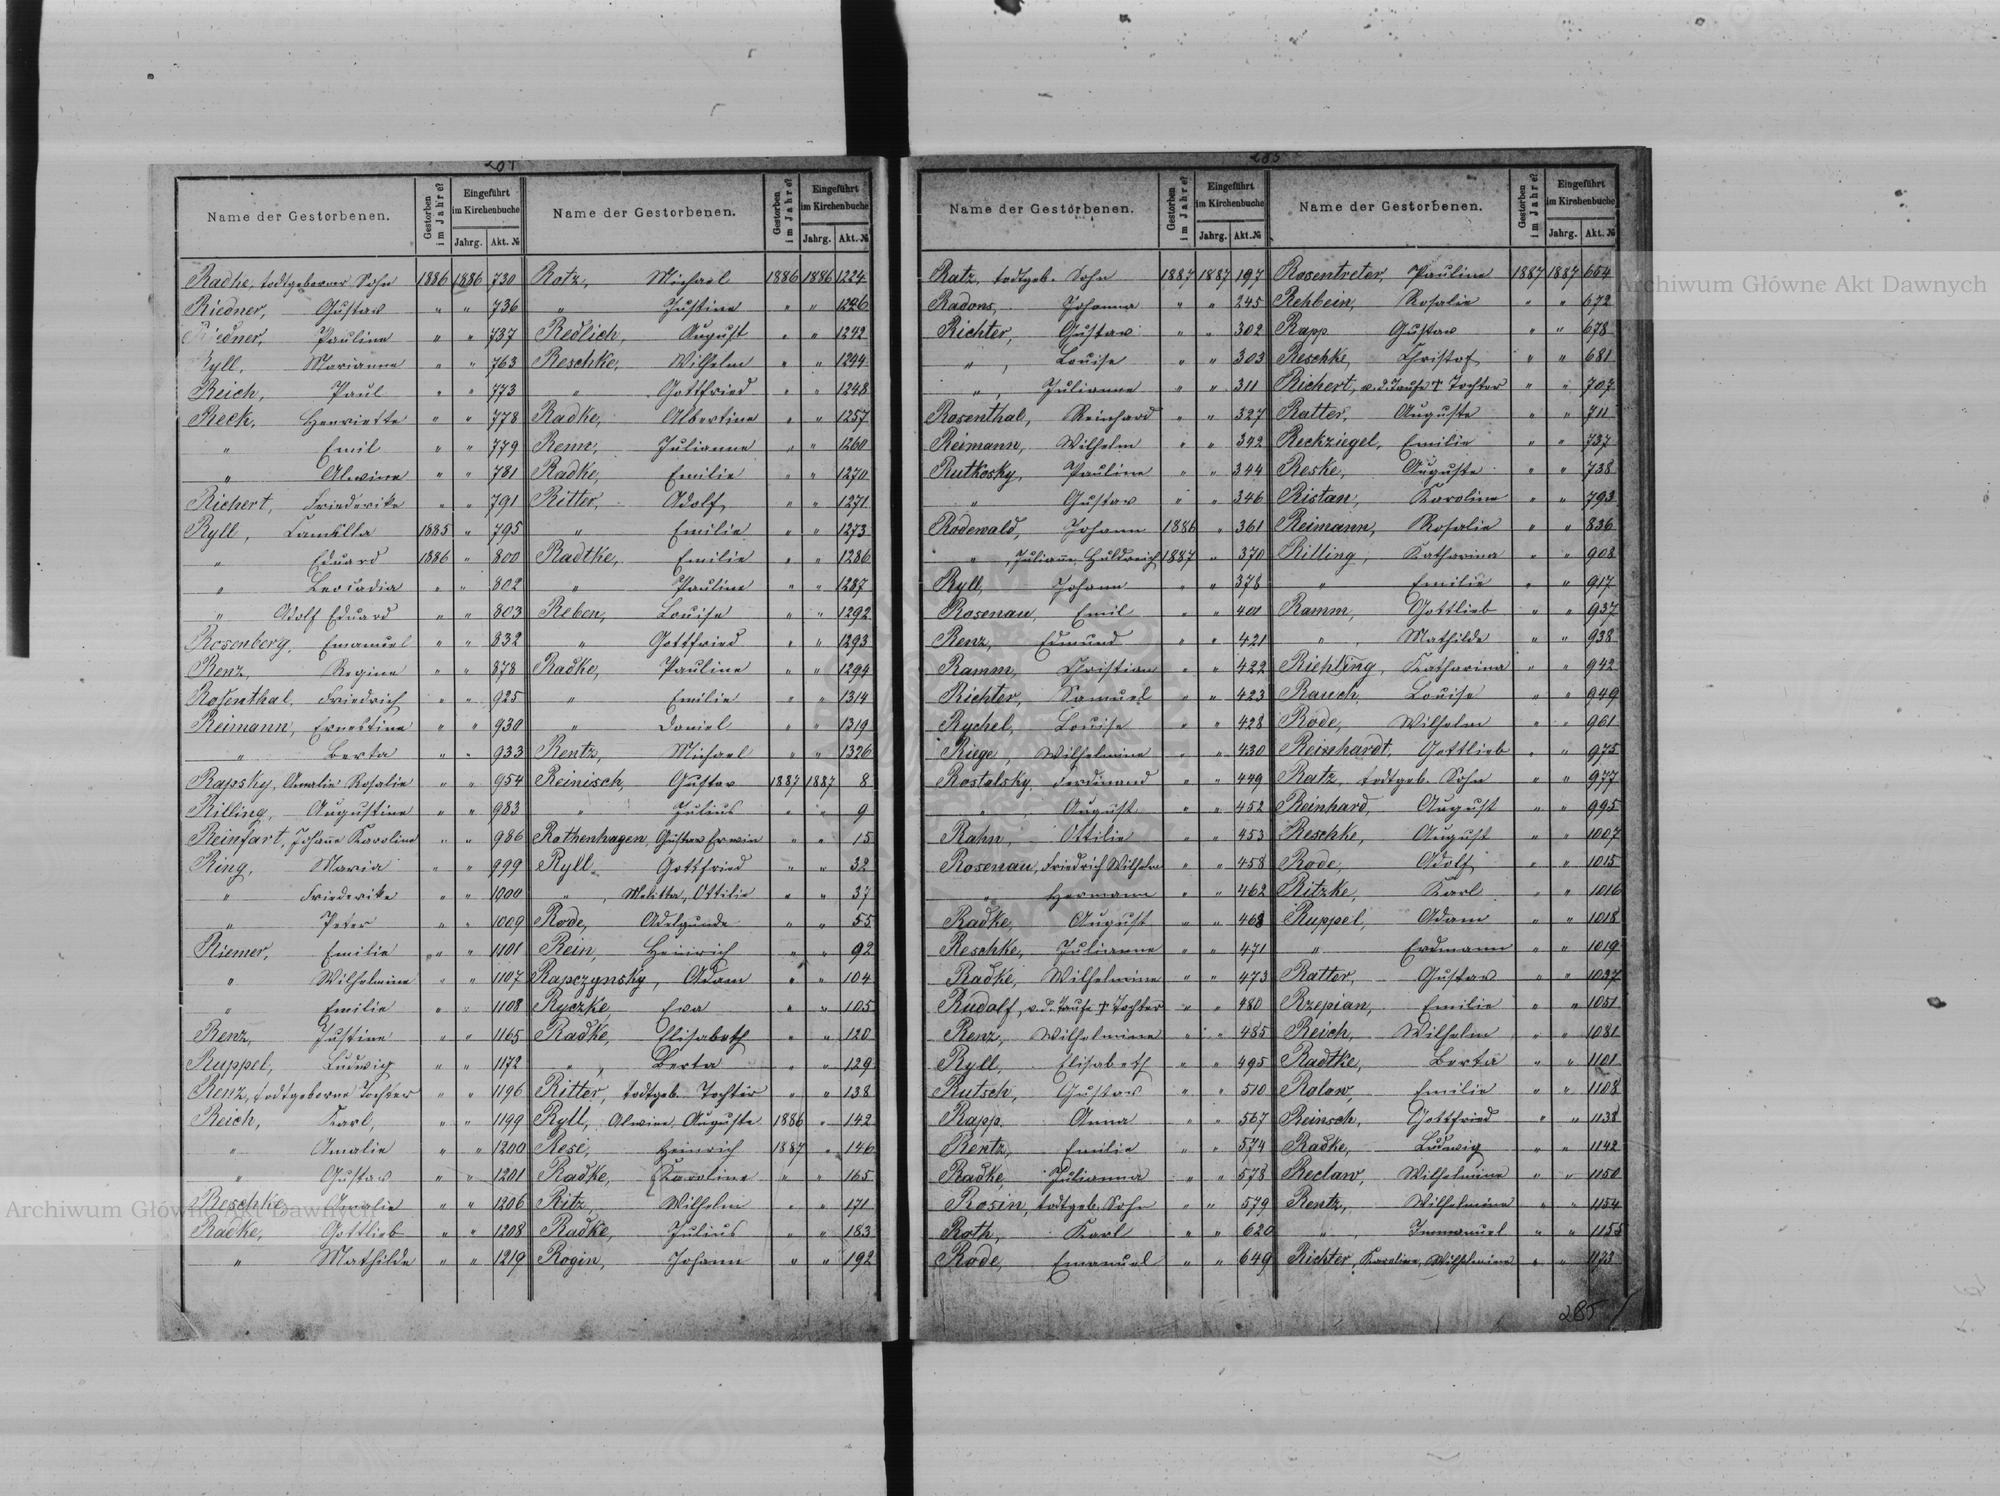 285
Name der Gestorbenen. Gestorben im Jahre? Eingeführt im Kirchenbuche Jahrg. Akt. №
Radke, todtgeborner Sohn 1886 1886 730
Riedner, Gustav " " 736
Riedner, Pauline " " 737
Ryll, Marianne " " 763
Reich, Paul " " 773
Reck, Henriette " " 778
" Emil " " 779
" Alwine " " 781
Richert, Friederike " " 791
Ryll, Camilla 1885 " 795
" Eduard 1886 " 800
" Leocadia " " 802
" Adolf Eduard " " 803
Rosenberg, Emanuel " " 832
Renz, Regine " " 878
Rosenthal, Friedrich " " 925
Reimann, Ernestine " " 930
" Berta " " 933
Rapsky, Amalie Rosalie " " 954
Rilling, Augustine " " 983
Reinfart, Johañe Karoline " " 986
Ring, Maria " " 999
" Friederike " " 1000
" Peter " " 1009
Riemer, Emilie " " 1101
" Wilhelmine " " 1107
" Emilie " " 1108
Renz, Justine " " 1165
Ruppel, Ludwig " " 1172
Renz, todtgeborne Tochter " " 1196
Reich, Karl, " " 1199
" Amalie " " 1200
" Gustav " " 1201
Reschke, Amalie " " 1206
Radke, Gottlieb " " 1208
" Mathilde " " 1219
Name der Gestorbenen. Gestorben im Jahre? Eingeführt im Kirchenbuche Jahrg. Akt. №
Rotz, Michael 1886 1886 1224
" Justine " " 1226
Redlich, August " " 1242
Reschke, Wilhelm " " 1244
" Gottfried " " 1248
Radke, Albertine " " 1257
Reim, Julianne " " 1260
Radke, Emilie " " 1270
Ritter, Adolf " " 1271
" Emilie " " 1273
Radtke, Emilie " " 1286
" Pauline " " 1287
Reben, Louise " " 1292
" Gottfried " " 1293
Radke, Pauline " " 1299
" Emilie " " 1314
" Daniel " " 1319
Rentz, Michael " " 1326
Reinisch, Gustav 1887 1887 8
" Julius " " 9
Rothenhagen, Gustav Erwin " " 15
Ryll, Gottfried " " 32
" , Melitta, Ottilie " " 37
Rode, Adelgunde " " 55
Rein, Heinrich " " 92
Rapczynsky, Adam " " 104
Ryczke, Ewa " " 105
Radke, Elisabeth " " 120
" , Berta " " 129
Ritter, todtgeb. Tochter " " 138
Ryll, Alwine Auguste 1886 " 142
Rese, Heinrich 1887 " 146
Radke, Karoline " " 165
Ritz, Wilhelm " " 171
Radke, Julius " " 183
Rogin, Johann " " 192
285
Name der Gestorbenen. Gestorben im Jahre? Eingeführt im Kirchenbuche Jahrg. Akt. №
Ratz, todtgeb. Sohn 1887 1887 197
Radons, Johanna " " 245
Richter, Gustav " " 302
" , Louise " " 303
" , Julianne " " 311
Rosenthal, Reinhard " " 327
Reimann, Wilhelm " " 342
Rutkosky, Pauline " " 344
" Gustav " " 346
Rodewald, Johann 1886 " 361
" , Juliañe Huldreich 1887 " 370
Ryll, Johann " " 378
Rosenau, Emil " " 401
Renz, Edmund " " 421
Ramm, Christian " " 422
Richter, Samuel " " 423
Rychel, Louise " " 428
Riege, Wilhelmine " " 430
Rostalsky, Ferdinand " " 449
" , August " " 452
Rahn, Ottilie " " 453
Rosenau, Friedrich Wilhelm " " 458
" Hermann " " 462
Radke, August " " 468
Reschke, Julianne " " 471
Radke, Wilhelmine " " 473
Rudolf, v. d. Taufe † Tochter " " 480
Renz, Wilhelmine " " 485
Ryll, Elisabeth " " 495
Rutsch, Gustav " " 510
Rapp, Anna " " 567
Rentz, Emilie " " 574
Radke, Julianna " " 578
Rosin, todtgeb. Sohn " " 579
Roth, Karl " " 620
Rode, Emanuel " " 649
Name der Gestorbenen. Gestorben im Jahre? Eingeführt im Kirchenbuche Jahrg. Akt. №
Rosentreter, Pauline 1887 1887 654
Rehbein, Rosalie " " 672
Rapp Gustav " " 678
Reschke, Christof " " 681
Richert, v. d. Taufe † Tochter " " 707
Ratter, Auguste " " 711
Reckziegel, Emilie " " 737
Reske, Auguste " " 738
Ristau, Karoline " " 793
Reimann, Rosalie " " 836
Rilling, Katharina " " 908
" Emilie " " 917
Ramm, Gottlieb " " 937
" , Mathilde " " 938
Riehling, Katharina " " 942
Rauch, Louise " " 949
Rode, Wilhelm " " 961
Reinhardt, Gottlieb " " 975
Ratz, todtgeb. Sohn " " 977
Reinhard, August " " 995
Reschke, August " " 1007
Rode, Adolf " " 1015
Ritzke, Karl " " 1016
Ruppel, Adam " " 1018
" Erdmann " " 1019
Ratter, Gustav " " 1037
Rzepian, Emilie " " 1051
Reich, Wilhelm " " 1081
Radtke, Berta " " 1101
Rolow, Emilie " " 1108
Reinsch, Gottfried " " 1138
Radke, Ludwig " " 1142
Reclaw, Wilhelmine " " 1150
Rentz, Wilhelmine " " 1154
" , Immanuel " " 1155
Richter, Karoline, Wilhelmine " "
285
Archiwum Główne Akt Dawnych
Archiwum Główne Akt Dawnych